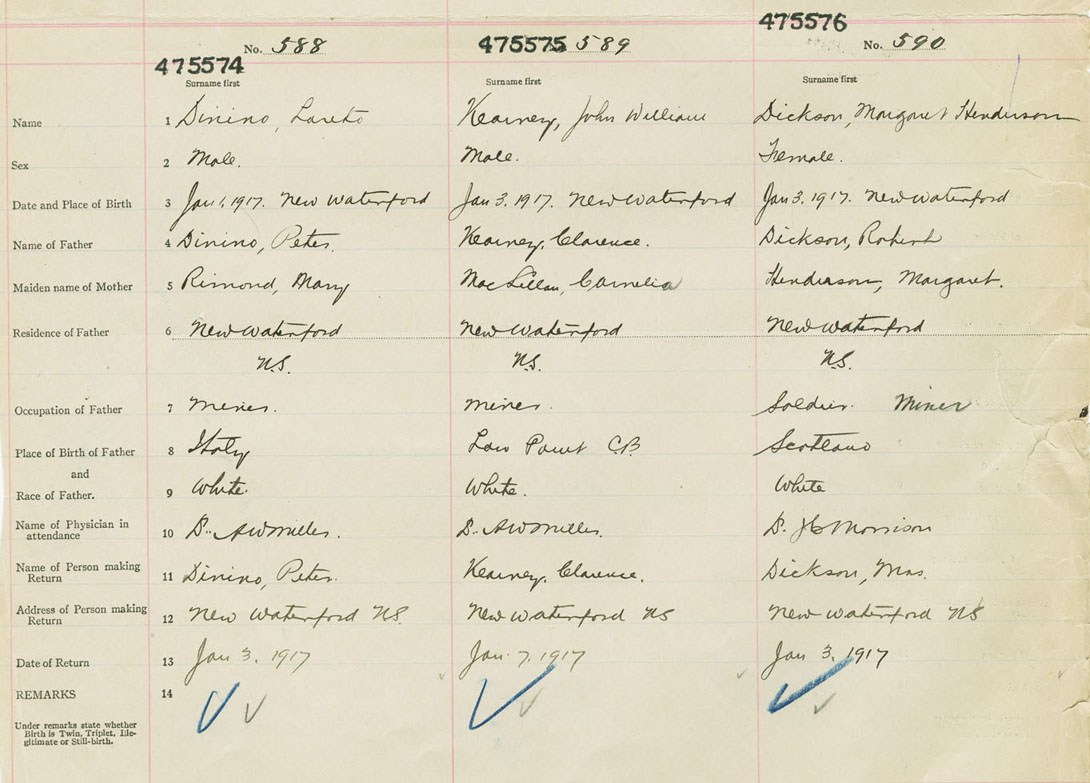 475576
475574 No. 588 475575 589 No. 590
Surname first Surname first Surname first
Name 1 Dinino, Loreto Kearney, John William Dickson, Margaret Henderson
Sex 2 Male. Male. Female.
Date and Place of Birth 3 Jan 1, 1917. New Waterford Jan 3, 1917. New Waterford Jan 3, 1917. New Waterford
Name of Father 4 Dinino, Peter. Kearney, Clarence. Dickson, Robert
Maiden name of Mother 5 Rimond, Mary MacLellan, Cornelia Henderson, Margaret.
Residence of Father 6 New Waterford New Waterford New Waterford
N.S. N.S. N.S.
Occupation of Father 7 Miner. Miner. Soldier. Miner
Place of Birth of Father 8 Italy Low Point C.B. Scotland
and
Race of Father. 9 White. White. White
Name of Physician in
attendance 10 Dr. AW Miller. Dr. AW Miller. Dr. Morrison
Name of Person making
Return 11 Dinino, Peter. Kearney, Clarence. Dickson, Mrs.
Address of Person making
Return 12 New Waterford N.S. New Waterford NS New Waterford NS
Date of Return 13 Jan 3, 1917 Jan. 7, 1917 Jan 3, 1917
REMARKS 14
Under remarks state whether
Birth is Twin, Triplet, Ille-
gitimate or Still-birth.